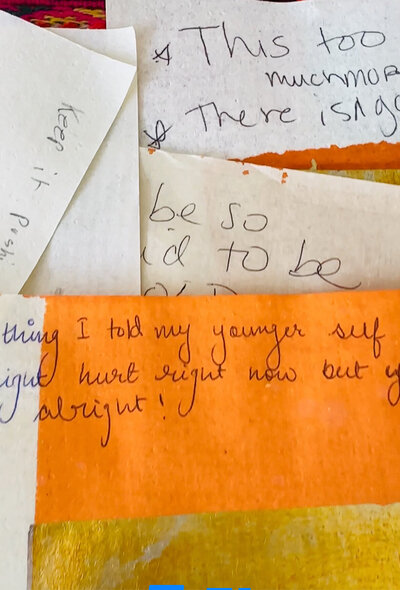 This too
much mor
There is a go
Keep it Posi
be so
id to be
thing I told my younger self
ight hurt right now but y
alright!